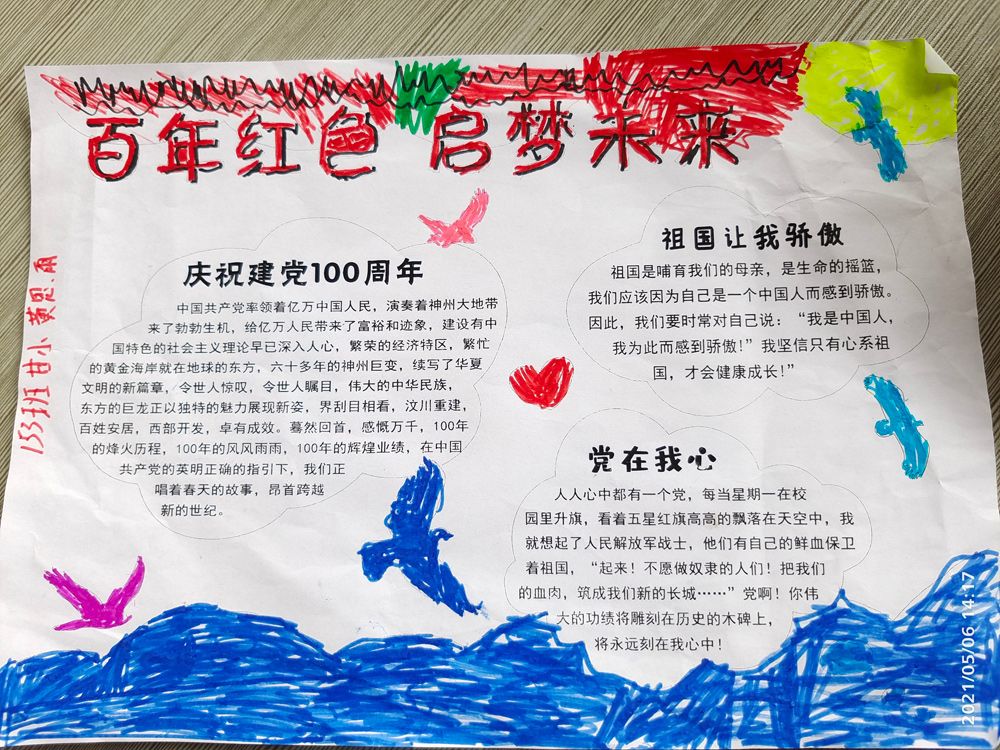 百年红色 启梦未来
153班 甘小 黄思雨
庆祝建党100周年
中国共产党率领着亿万中国人民，演奏着神州大地带
来了勃勃生机，给亿万人民带来了富裕和迹象，建设有中
国特色的社会主义理论早已深入人心，繁荣的经济特区，繁忙
的黄金海岸就在地球的东方，六十多年的神州巨变，续写了华夏
文明的新篇章，令世人惊叹，令世人瞩目，伟大的中华民族，
东方的巨龙正以独特的魅力展现新姿，界刮目相看，汶川重建，
百姓安居，西部开发，卓有成效。蓦然回首，感慨万千，100年
的烽火历程，100年的风风雨雨，100年的辉煌业绩，在中国
共产党的英明正确的指引下，我们正
唱着春天的故事，昂首跨越
新的世纪。
祖国让我骄傲
祖国是哺育我们的母亲，是生命的摇篮，
我们应该因为自己是一个中国人而感到骄傲。
因此，我们要时常对自己说：“我是中国人，
我为此而感到骄傲!”我坚信只有心系祖
国，才会健康成长!”
党在我心
人人心中都有一个党，每当星期一在校
园里升旗，看着五星红旗高高的飘落在天空中，我
就想起了人民解放军战士，他们有自己的鲜血保卫
着祖国，“起来！不愿做奴隶的人们！把我们
的血肉，筑成我们新的长城……”党啊！你伟
大的功绩将雕刻在历史的木碑上，
将永远刻在我心中！
2021/05/06 14:17